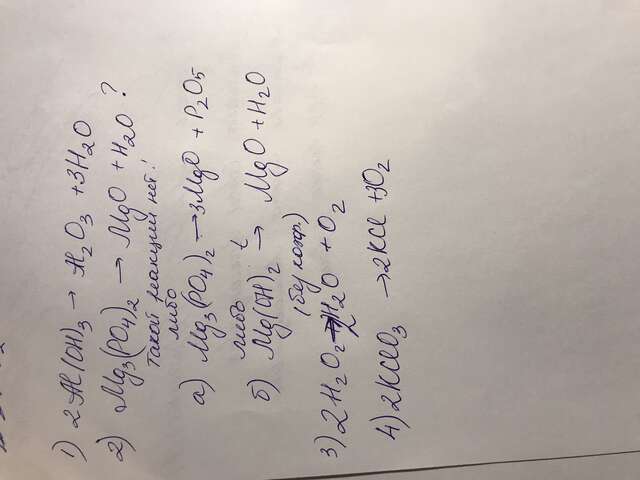 1) 2Al(OH)₃ → Al₂O₃ + 3H₂O
2) Mg₃(PO₄)₂ → MgO + H₂O ?
Такой реакции нет!
либо
а) Mg₃(PO₄)₂ → 3MgO + P₂O₅
либо t
б) Mg(OH)₂ → MgO + H₂O
(без коэф.)
3) 2H₂O₂ → 2H₂O + O₂
4) 2KClO₃ → 2KCl + 3O₂